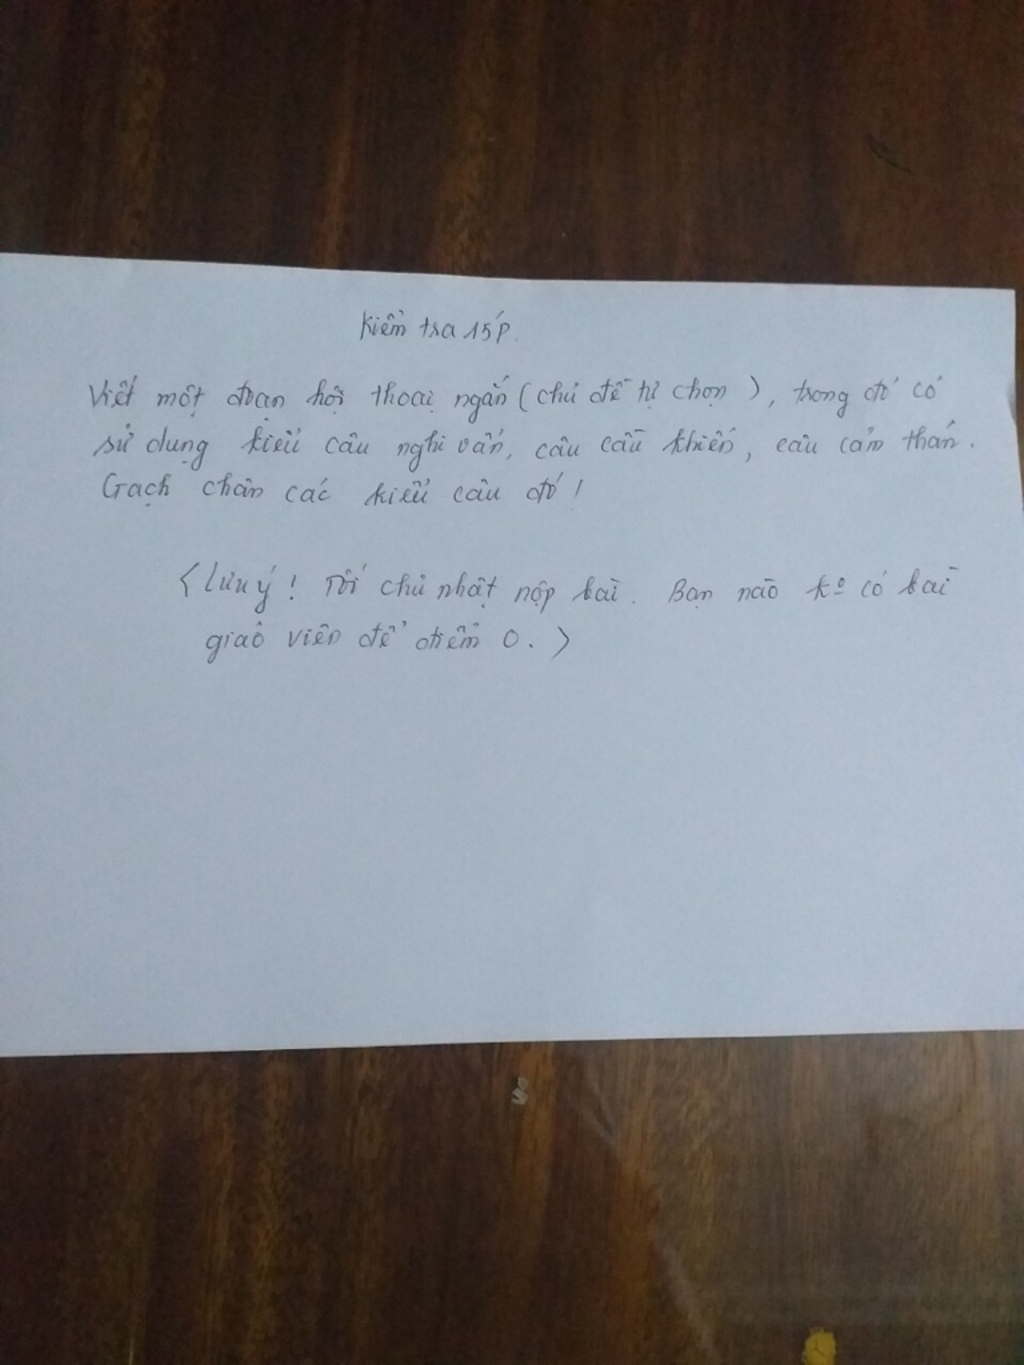 Kiểm tra 15p.
Viết một đoạn hội thoại ngắn (chủ đề tự chọn), trong đó có
sử dụng kiểu câu nghi vấn, câu cầu khiến, câu cảm thán.
Gạch chân các kiểu câu đó!
<Lưu ý! Tối chủ nhật nộp bài. Bạn nào kº có bài
giáo viên để điểm 0.>